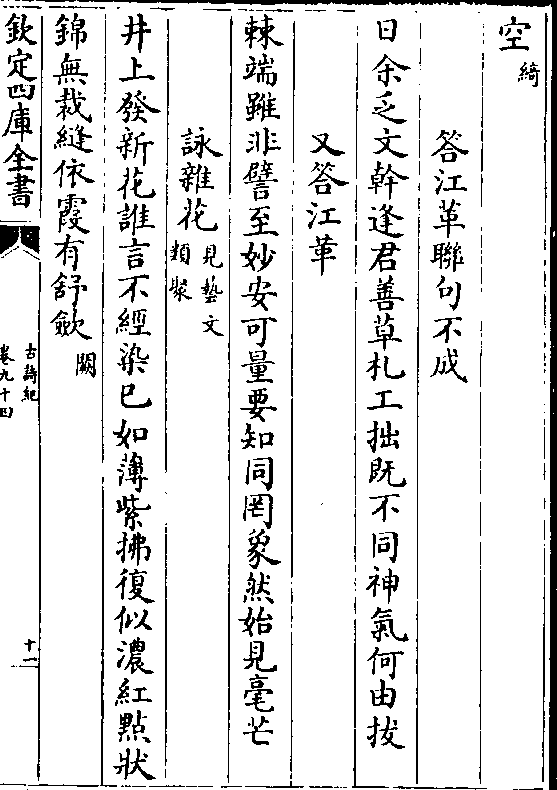 空綺
答江革聯句不成
日余乏文幹逢君善草札工拙既不同神氣何由拔
又答江革
棘端雖非譬至妙安可量要知同罔象然始見毫芒
詠雜花見藝文類聚
井上發新花誰言不經染已如薄紫拂復似濃紅點狀
錦無裁縫依霞有舒歛闕
欽定四庫全書
古詩紀
卷九十四
十二